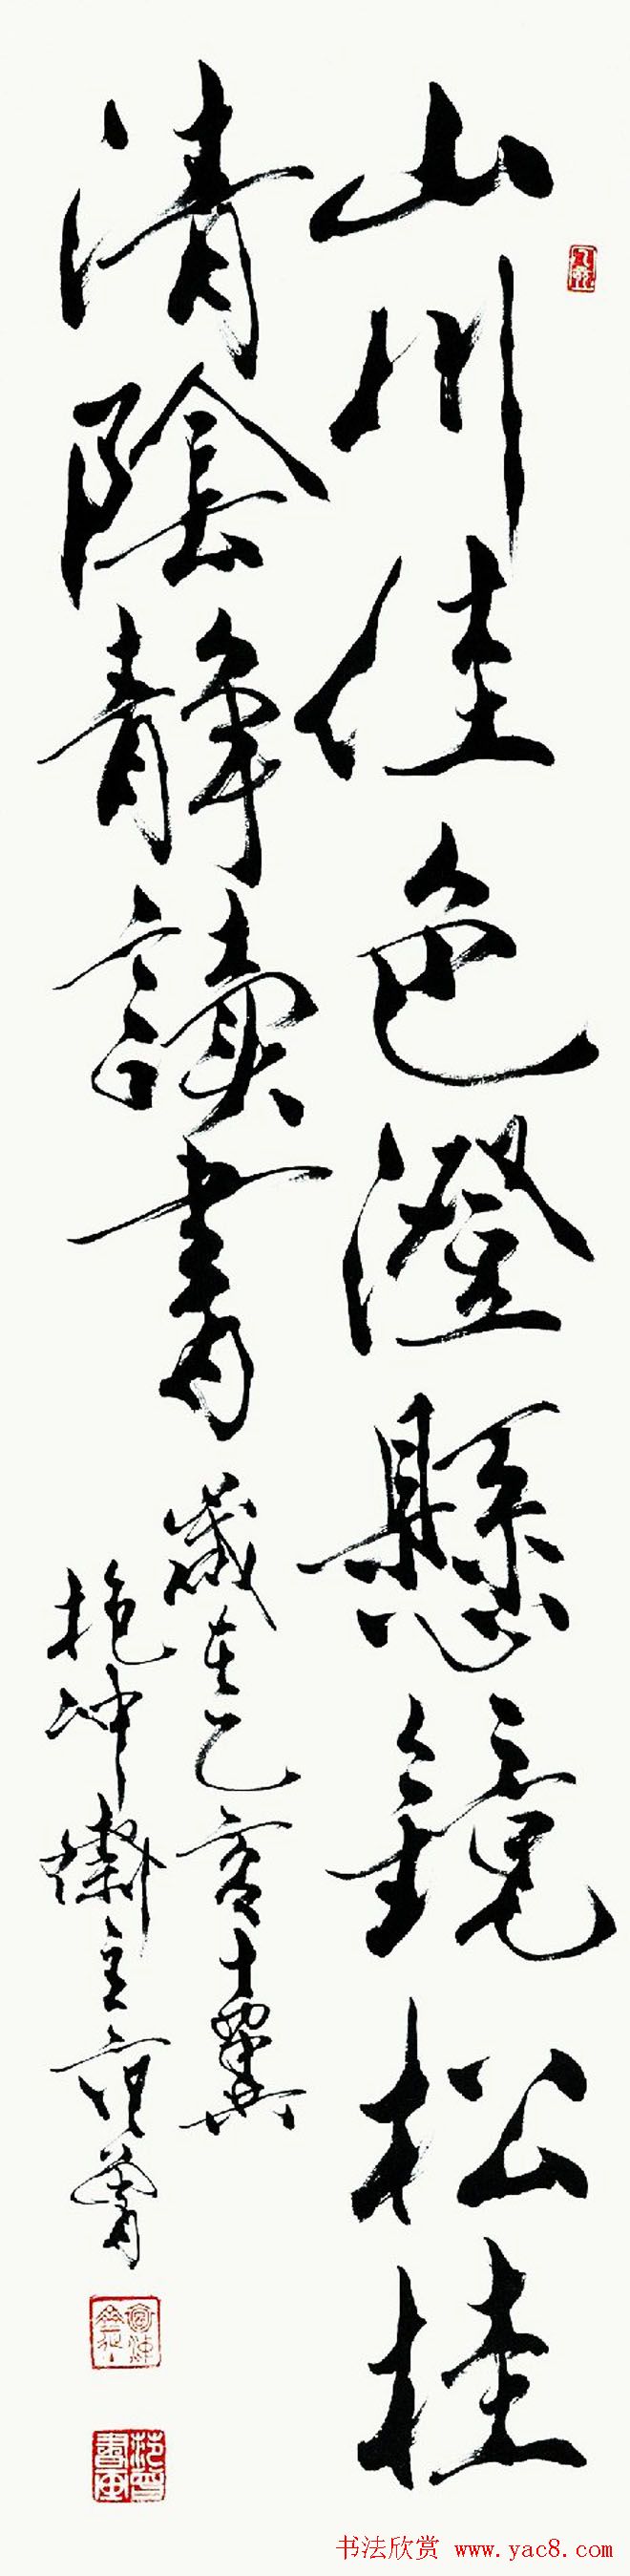 山川佳色澄懸鏡松桂
清陰靜讀書
歲在乙亥十翼
抱冲齋主范曾
范曾書画
书法欣赏 www.yac8.com